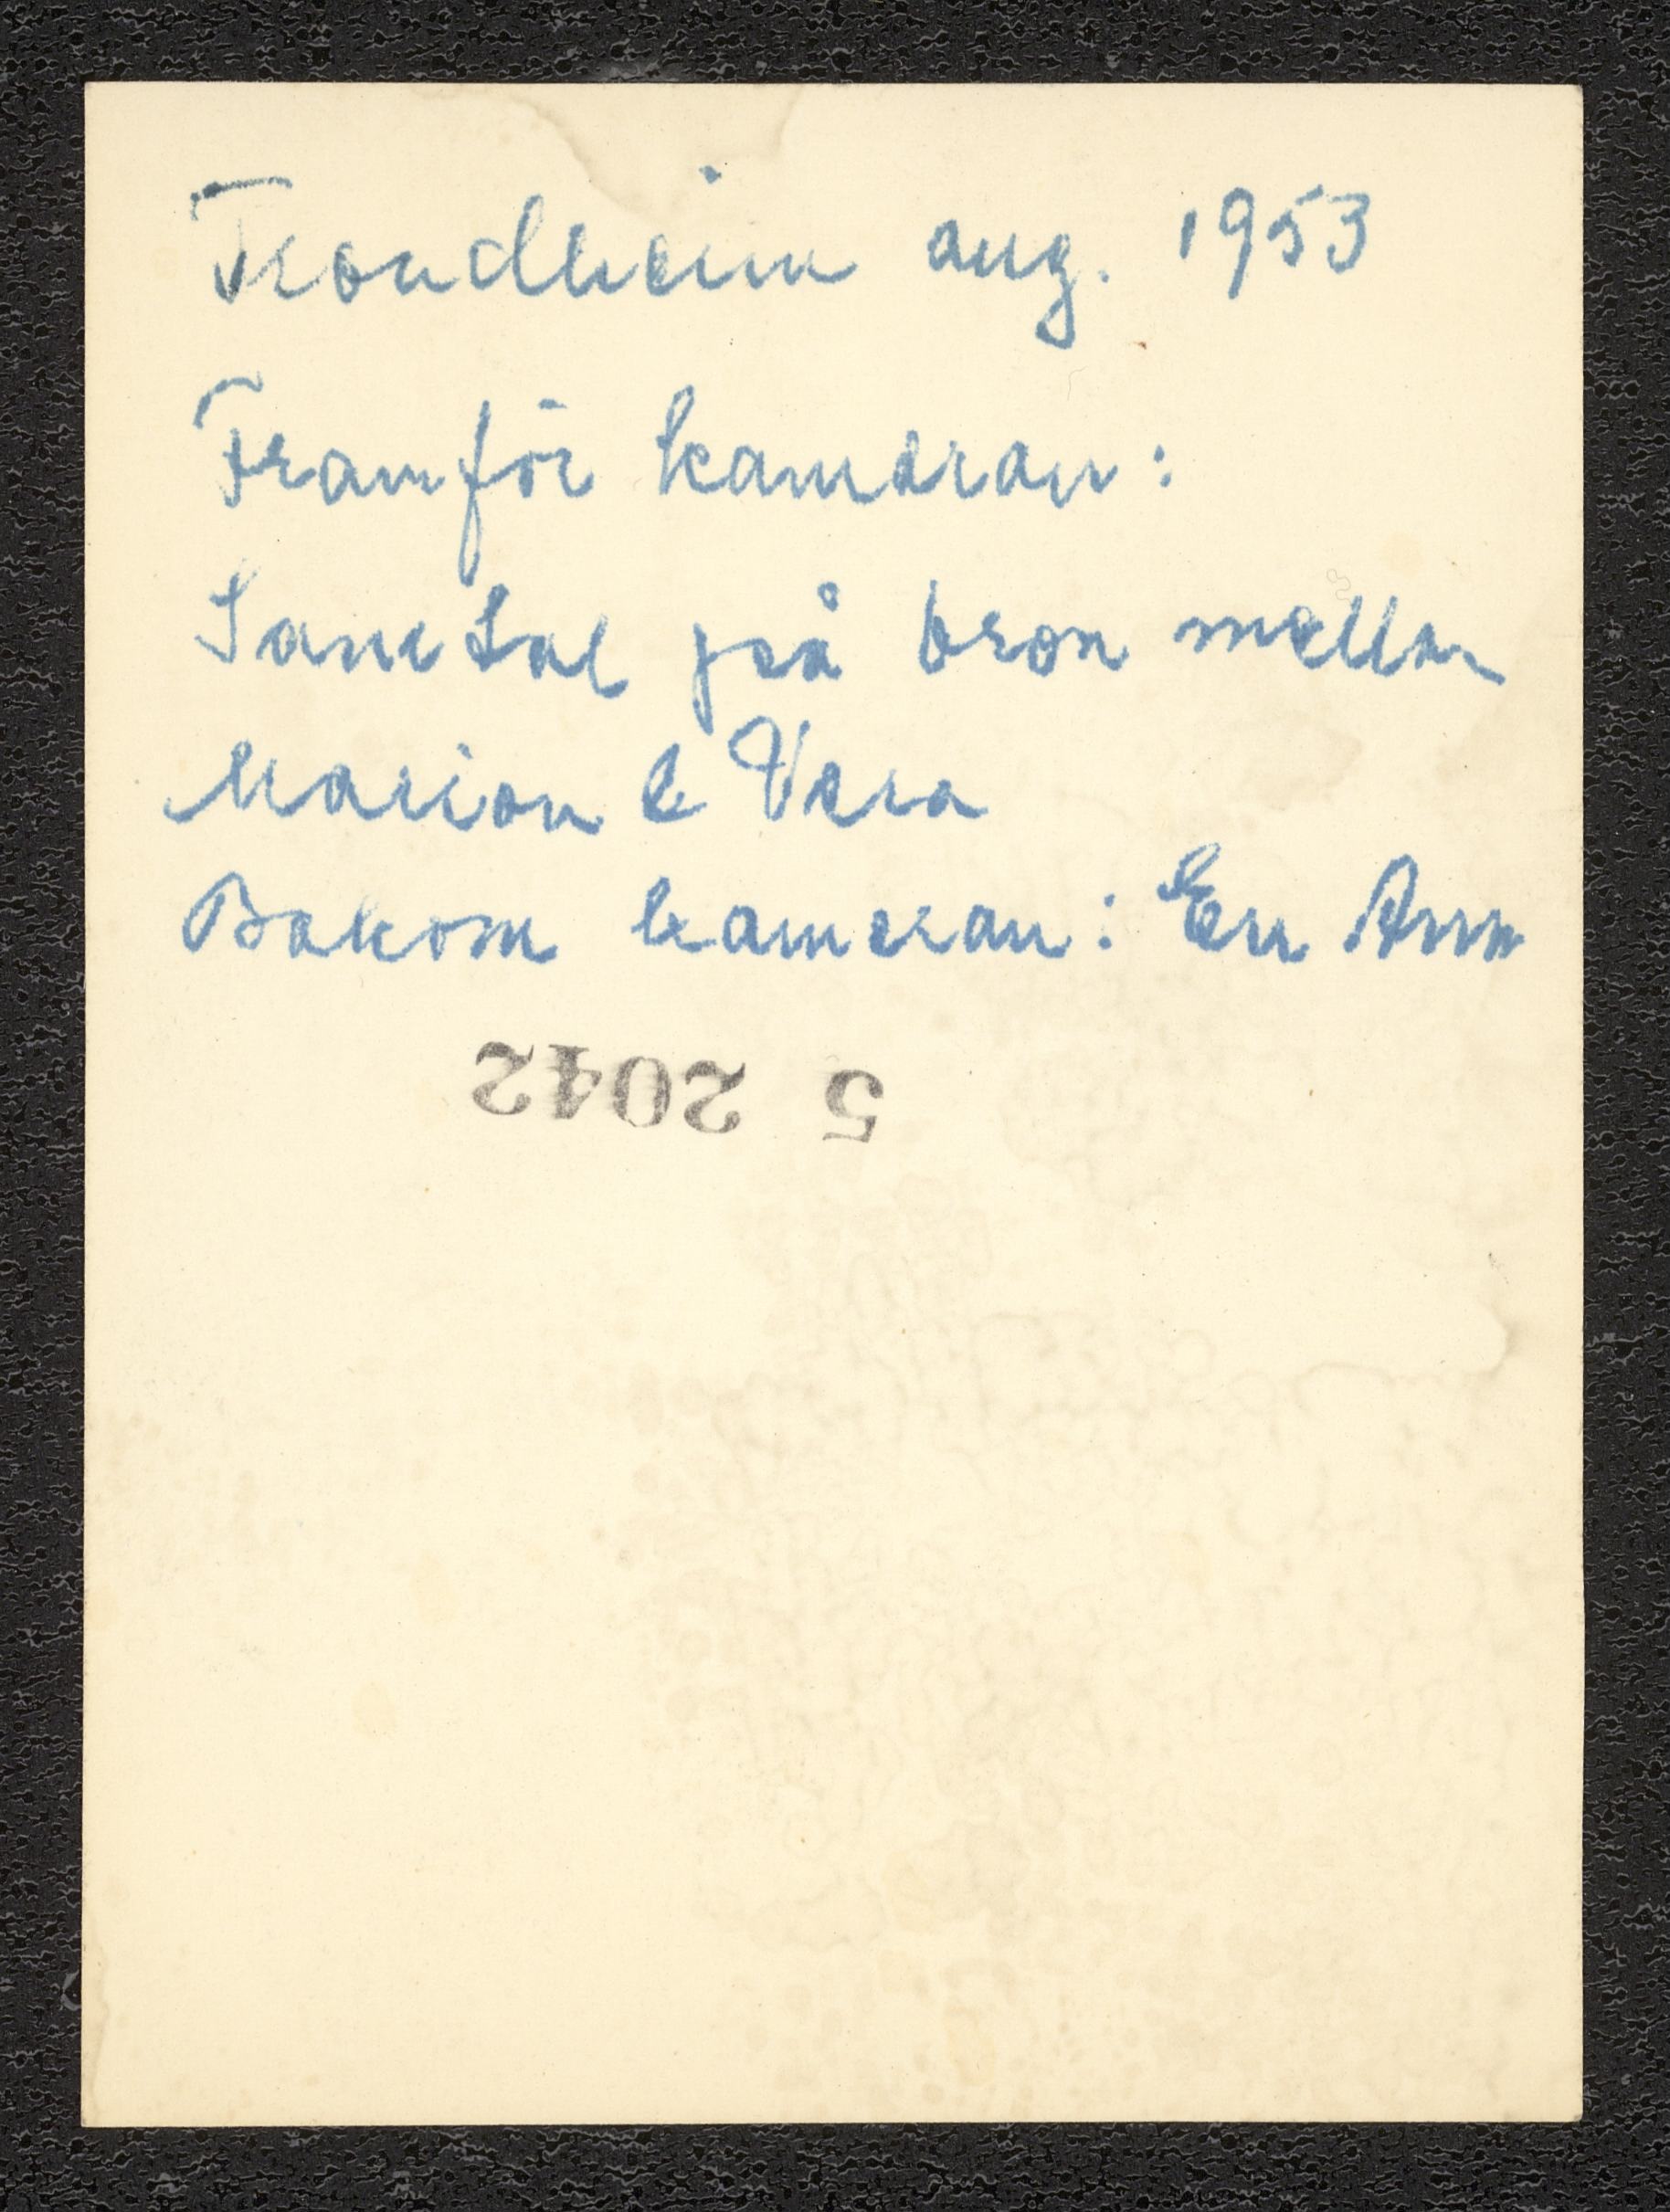 Trondheim aug. 1953
Framför kameran:
Samtal på bron mellan
Marion & Vera
Bakom kameran: Eva Ann
5 2042